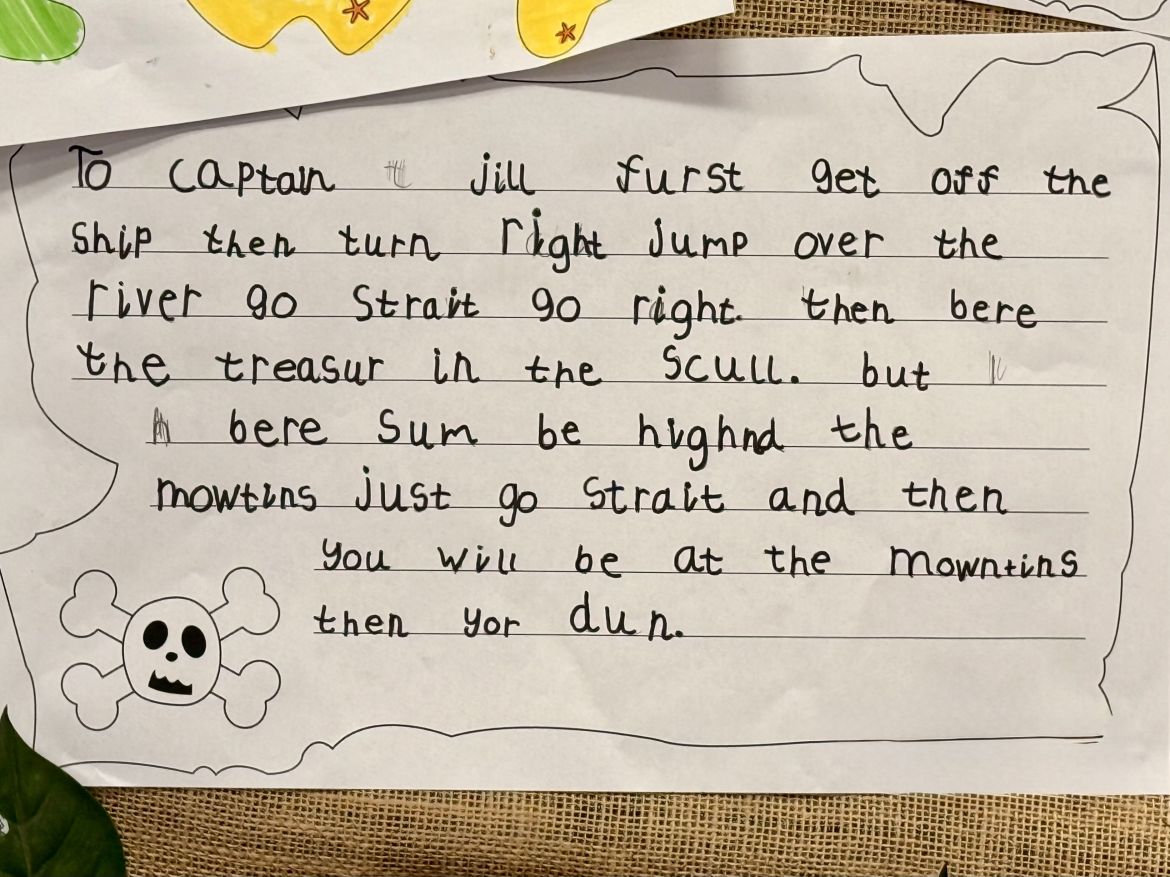 To captain jill furst get off the
ship then turn right jump over the
river go Strait go right. then bere
the treasur in the Scull. but
bere Sum be highnd the
mowtins just go Strait and then
you will be at the mowntins
then yor dun.